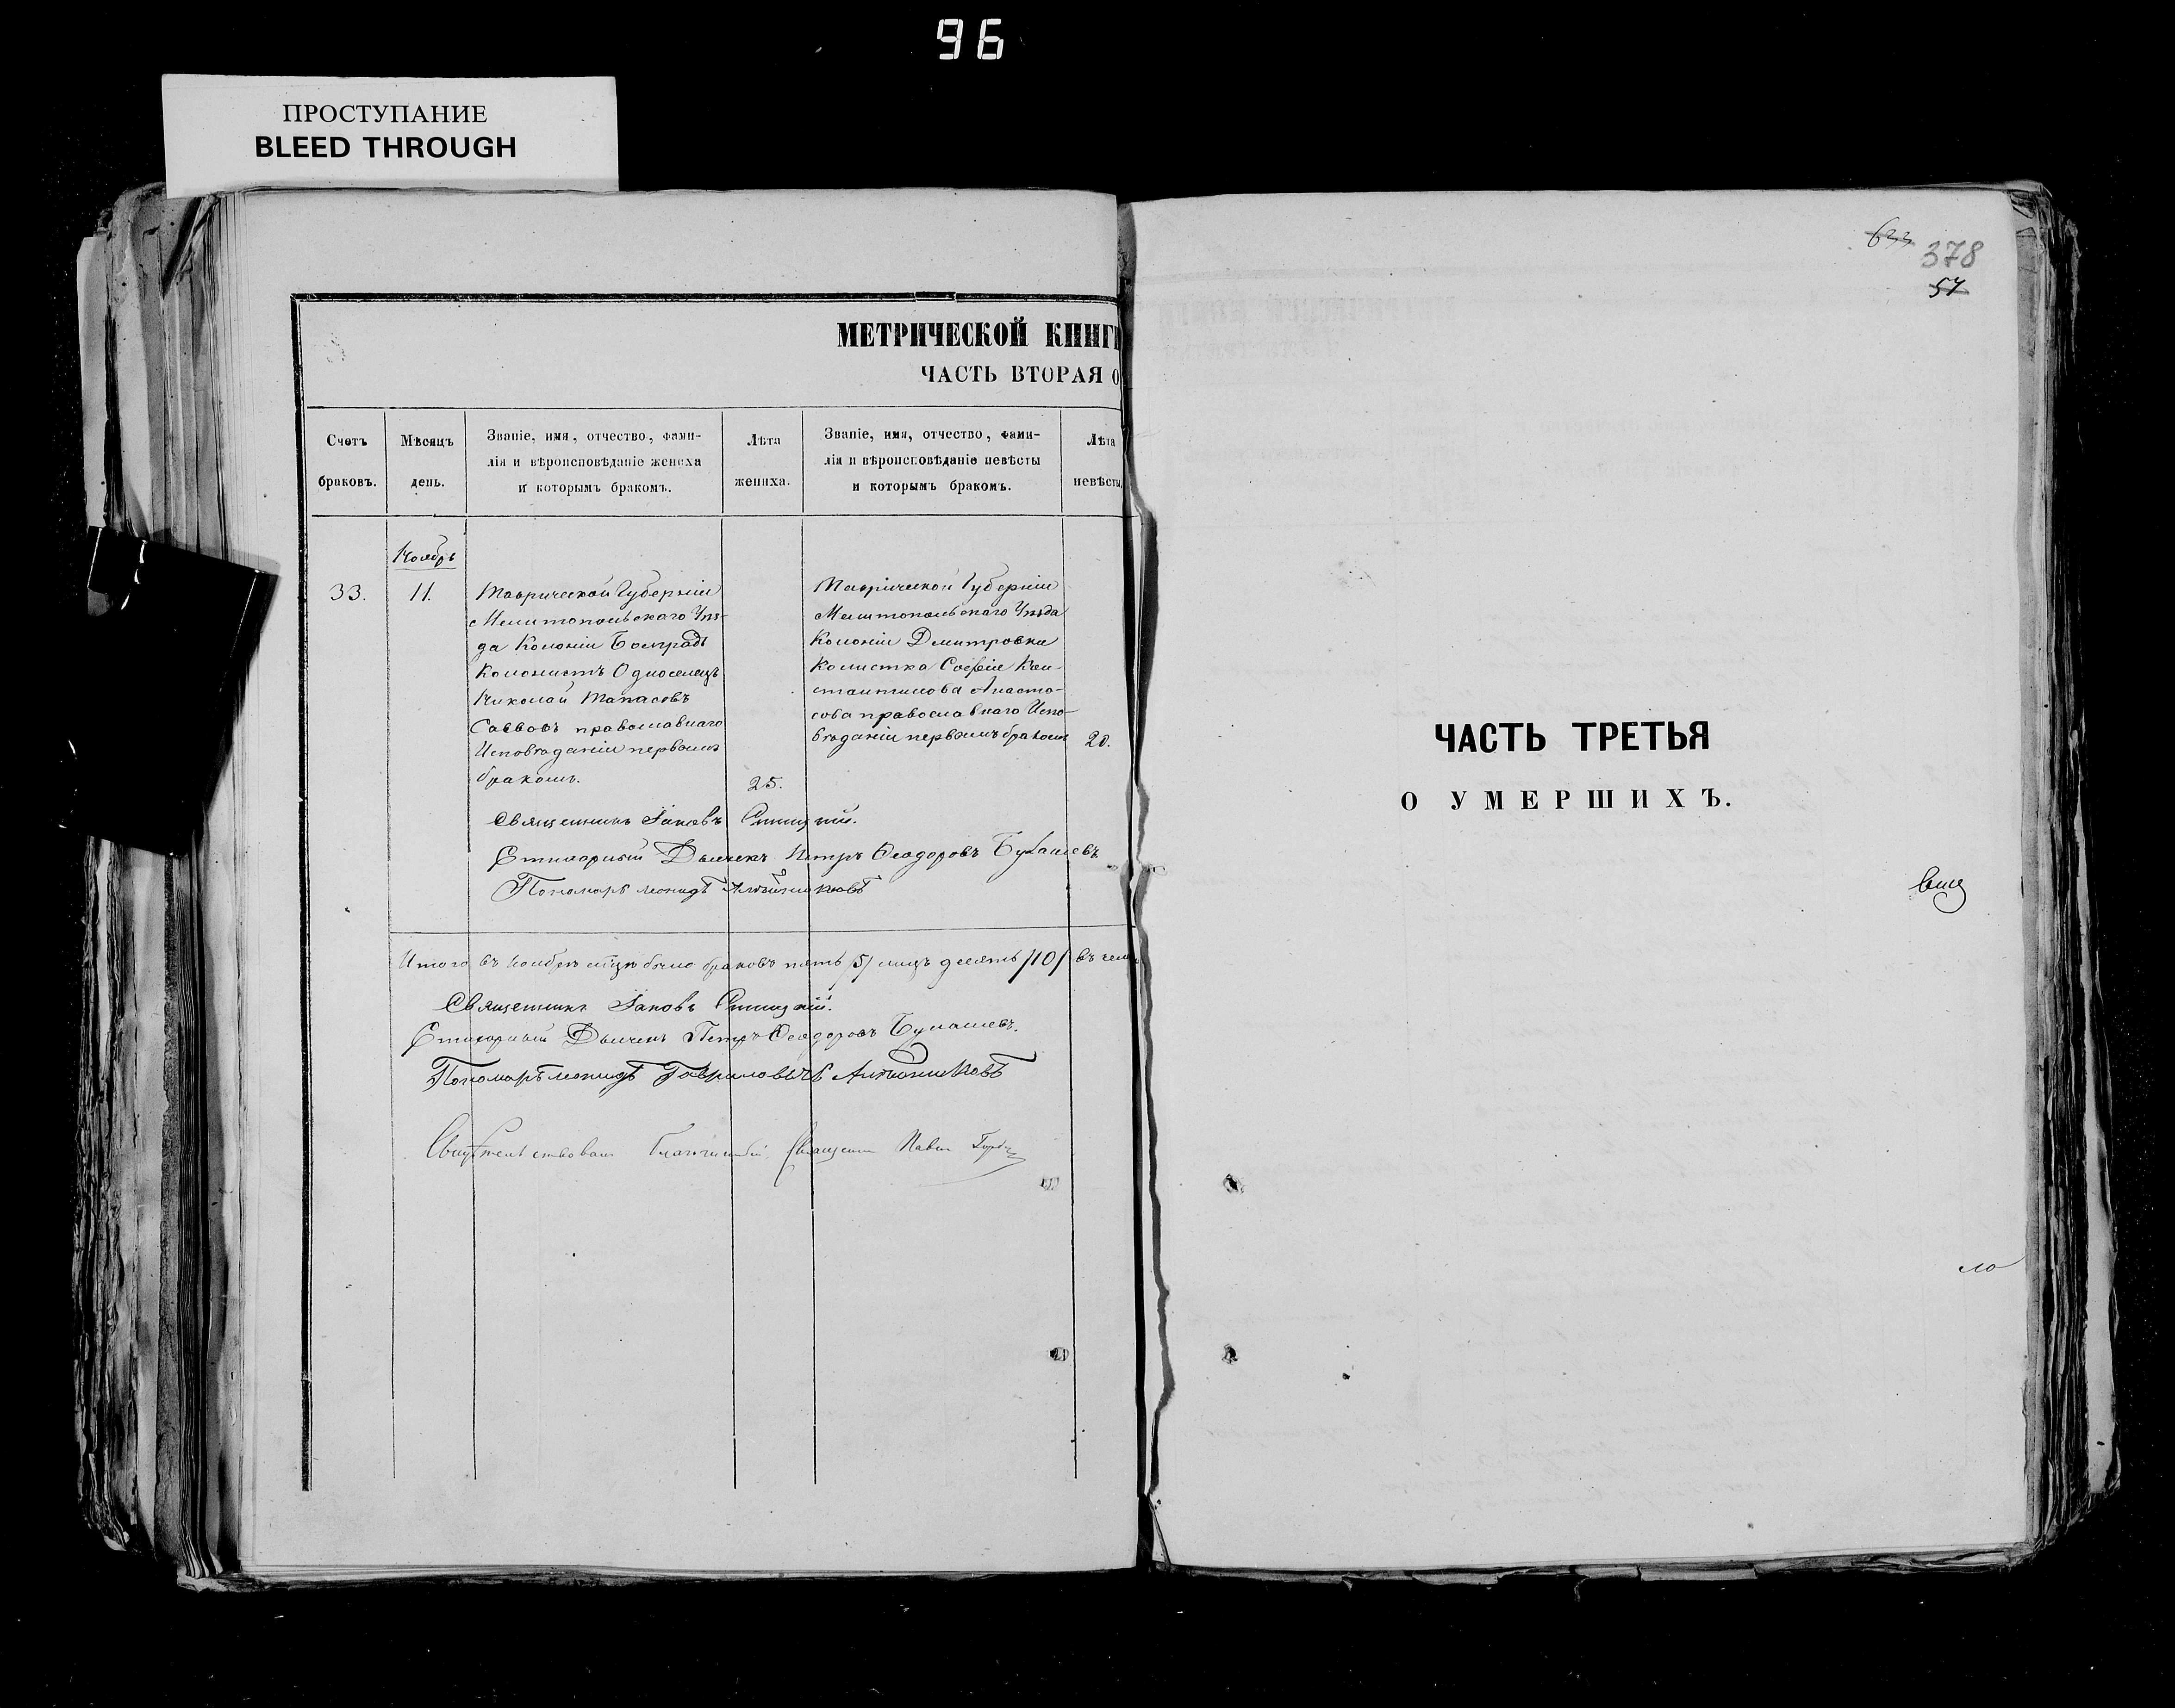 96
ПРОСТУПАНИЕ
BLEED THROUGH
МЕТРИЧЕСКОЙ КНИГИ
ЧАСТЬ ВТОРАЯ О
Счетъ браковъ.
Мѣсяцъ день.
Званіе, имя, отчество, фами-
лія и вѣроисповѣданіе жениха
и которымъ бракомъ.
Лѣта жениха.
Званіе, имя, отчество, фами-
лія и вѣроисповѣданіе невѣсты
и которымъ бракомъ.
Лѣта невѣсты.
Ноябрь
33.
11.
Таврической Губерніи
Мелитопольскаго Уѣз-
да Колоніи Болградъ
Колонистъ Односелецъ
Николай Танасовъ
Саввовъ православнаго
Исповѣданія первымъ
бракомъ.
25.
Таврической Губерніи
Мелитопольскаго Уѣзда
Колоніи Дмитровки
Колистка Софія Кон-
стантинова Анасто-
сова православнаго Испо-
вѣданія первымъ бракомъ
20.
Священникъ Іаковъ
Стихарный Дьячекъ Петръ Ѳеодоровъ Букашевъ
Пономарь Леонидъ
Итого въ Ноябрѣ мцѣ было браковъ пять /5/ лицъ десять /10/ въ чемъ
Священникъ Іаковъ
Стихарный Дьячекъ Петръ Ѳеодоровъ Букашевъ.
Пономарь Леонидъ Гавриловичъ
Свидѣтельствовалъ Благочинный Священникъ Павелъ
633
378
57
ЧАСТЬ ТРЕТЬЯ
О УМЕРШИХЪ.
ло